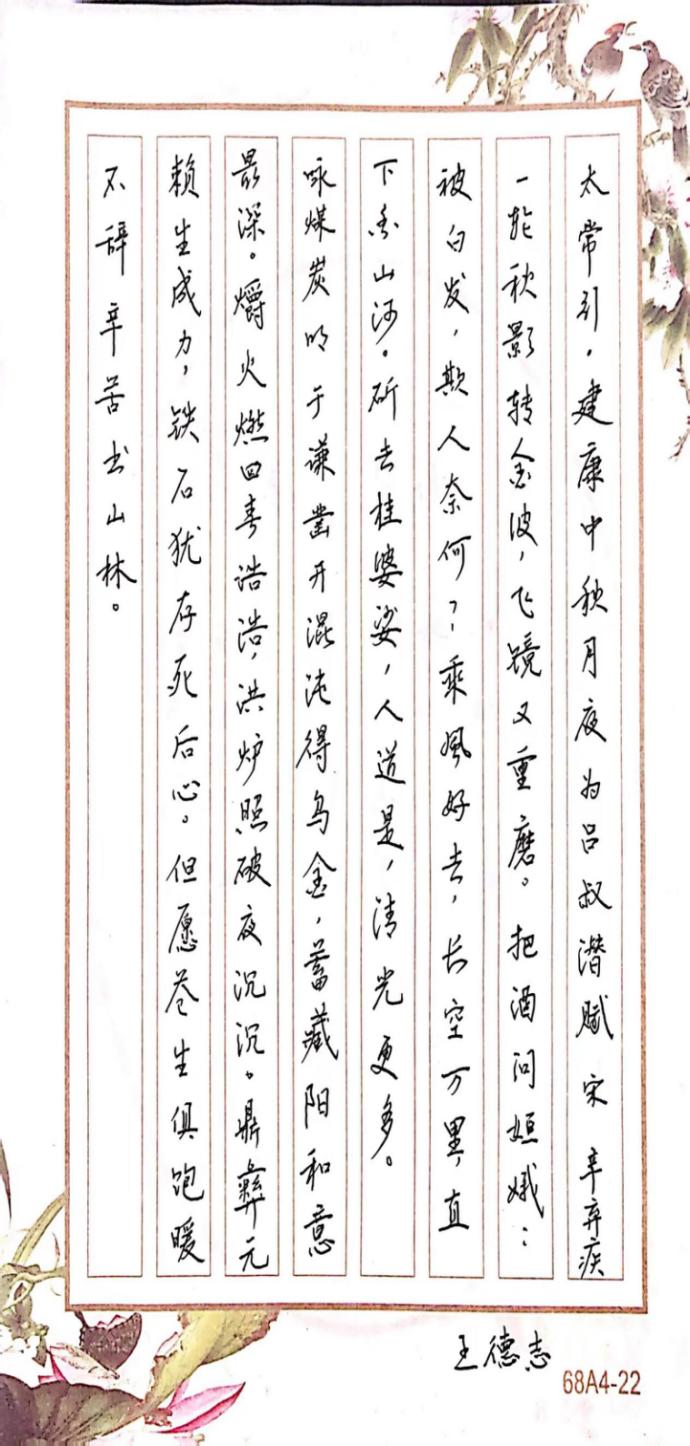 太常引，建康中秋月夜为吕叔潜赋 宋 辛弃疾
一轮秋影转金波，飞镜又重磨。把酒问姮娥：
被白发，欺人奈何？乘风好去，长空万里，直
下看山河。斫去桂婆娑，人道是，清光更多。
咏煤炭 明 于谦 凿开混沌得乌金，蓄藏阳和意
最深。爝火燃回春浩浩，洪炉照破夜沉沉。鼎彝元
赖生成力，铁石犹存死后心。但愿苍生俱饱暖
不辞辛苦出山林。
王德志
68A4-22